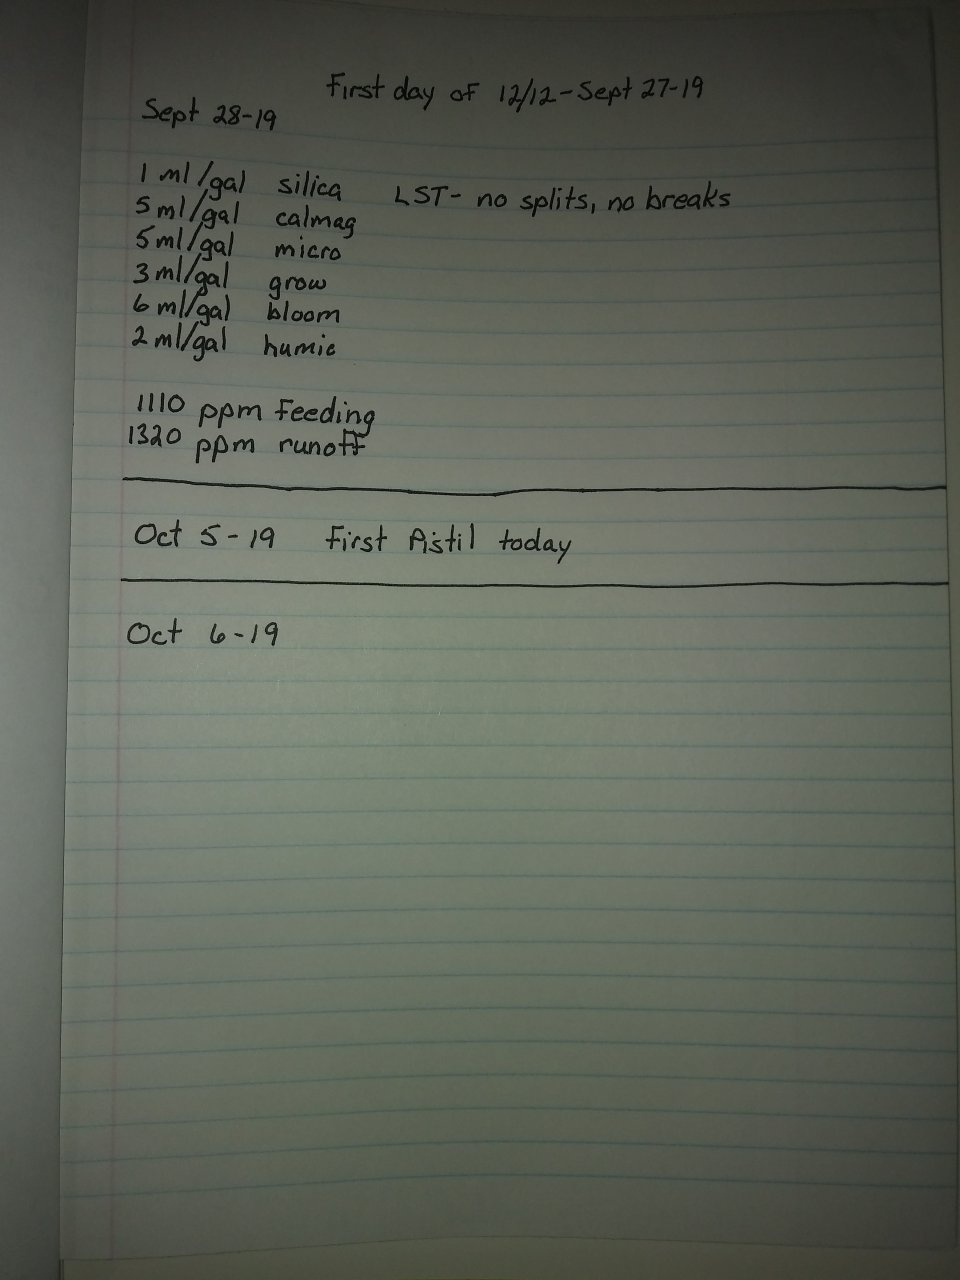 First day of 12/12-Sept 27-19
Sept 28-19
1 ml/gal silica LST- no splits, no breaks
5ml/gal calmag
5ml/gal micro
3ml/gal grow
6 ml/gal bloom
2 ml/gal humic
1110 ppm feeding
1320 ppm runoff
Oct 5-19 First Pistil today
Oct 6-19